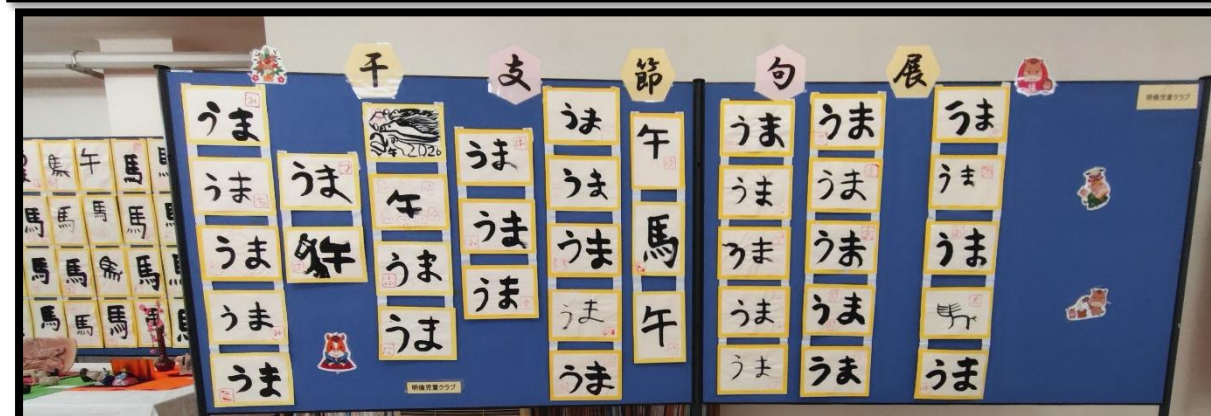 干支節句展
明倫児童クラブ
うま
うま
うま
うま
うま
うま
午
2026
午
うま
うま
うま
うま
うま
うま
うま
うま
うま
うま
午
馬
午
うま
うま
うま
うま
うま
うま
うま
うま
うま
うま
うま
うま
うま
馬
うま
明倫児童クラブ
馬
午
馬
馬
馬
馬
馬
馬
馬
馬
馬
馬
馬